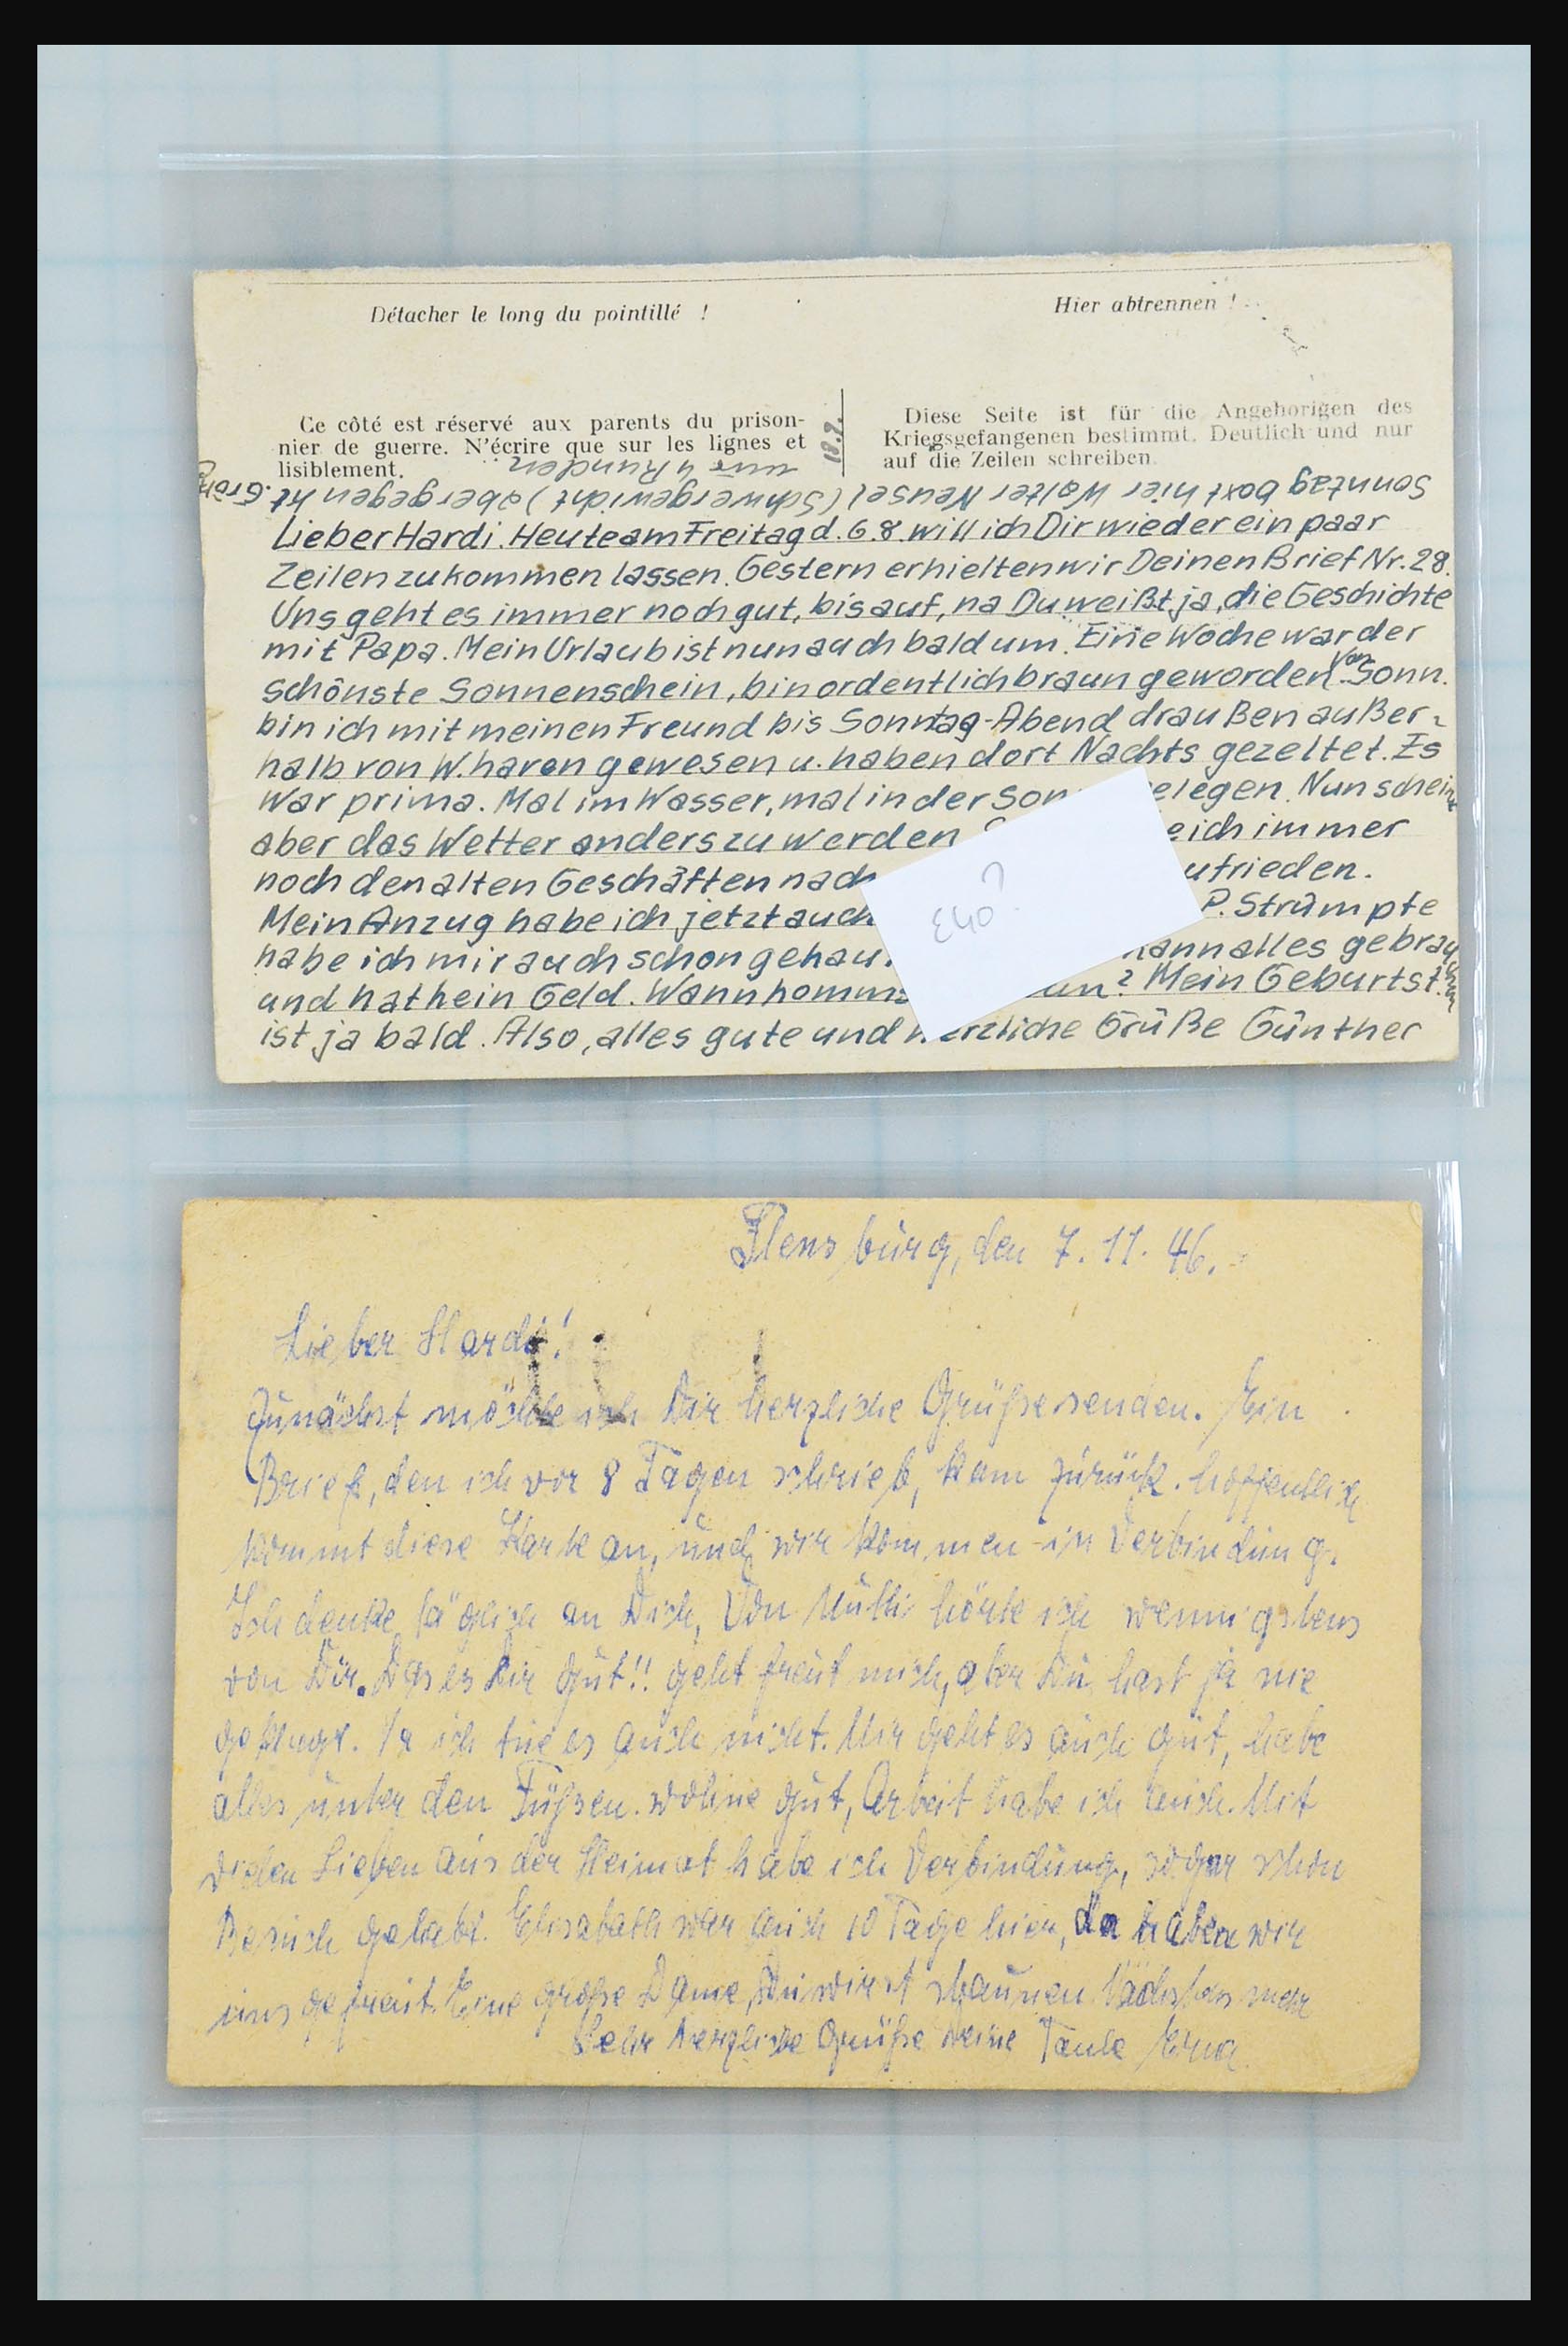 Détacher le long du pointillé !
Hier abtrennen !
Ce côté est réservé aux parents du prison-
nier de guerre. N'écrire que sur les lignes et
lisiblement.
18.8.
Diese Seite ist für die Angehörigen des
Kriegsgefangenen bestimmt. Deutlich und nur
auf die Zeilen schreiben.
Sonntag boxt hier Walter Neusel (Schwergewicht) aber gegen
nur 4 Runden
Lieber Hardi. Heute am Freitag d. 6.8. will ich Dir wieder ein paar
Zeilen zukommen lassen. Gestern erhielten wir Deinen Brief Nr. 28.
Uns geht es immer noch gut, bis auf, na Du weißt ja, die Geschichte
mit Papa. Mein Urlaub ist nun auch bald um. Eine Woche war der
schönste Sonnenschein, bin ordentlich braun geworden. Von Sonn.
bin ich mit meinen Freund bis Sonntag-Abend draußen außer-
halb von W.haven gewesen u. haben dort Nachts gezeltet. Es
war prima. Mal im Wasser, mal in der Son elegen. Nun scheint
aber das Wetter anders zu werden eich immer
noch den alten Geschäften nach ufrieden.
Mein Anzug habe ich jetzt auch P. Strümpfe
habe ich mir auch schon gekau. kann alles gebrauchen
und hat kein Geld. Wann komms un? Mein Geburtst.
ist ja bald. Also, alles gute und herzliche Grüße Günther
E40?
Flensburg, den 7.11.46.
Lieber Hardi!
Zunächst möchte ich Dir herzliche Grüße senden. Ein
Brief, den ich vor 8 Tagen schrieb, kam zurück. hoffentlich
kommt diese Karte an, und wir kommen in Verbindung.
Ich denke täglich an Dich, Von Mutti hörte ich wennigstens
von Dir. Das es Dir gut!! geht freut mich, aber Du hast ja nie
geklagt. Ja ich tue es auch nicht. Mir geht es auch gut, habe
alles unter den Füßen. wohne gut, Arbeit habe ich auch. Mit
vielen Lieben aus der Heimat habe ich Verbindung, sogar schon
Besuch gehabt. Elisabeth war auch 10 Tage hier, da haben wir
uns gefreut. Eine große Dame, Du wirst staunen. Nächstes mehr
Sehr herzliche Grüße Deine Tante Erna